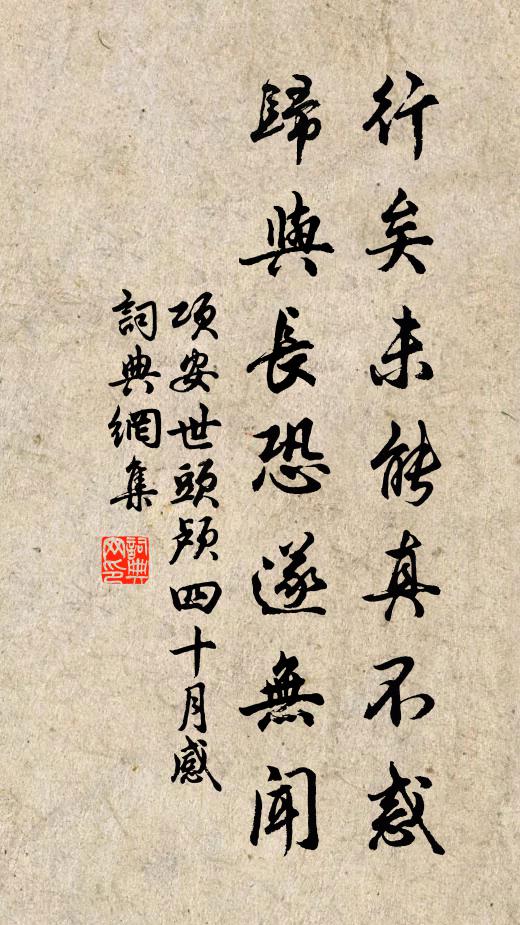 行矣未能真不惑
歸與長恐遂無聞
項安世頭顱四十月感
詞典網集
詞典網印